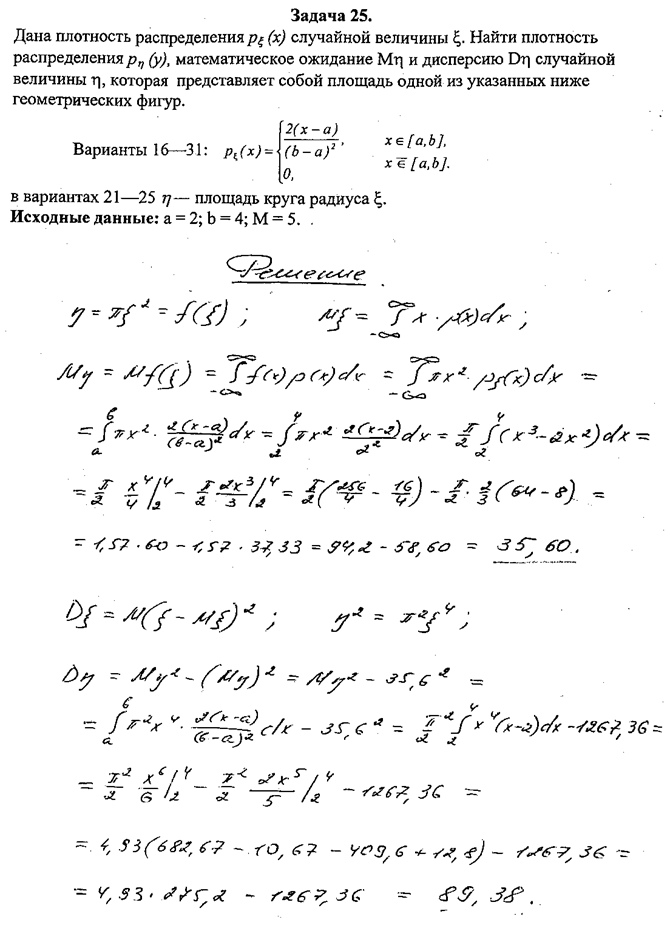 Задача 25.
Дана плотность распределения p_ξ (x) случайной величины ξ. Найти плотность
распределения p_η (y), математическое ожидание Mη и дисперсию Dη случайной
величины η, которая представляет собой площадь одной из указанных ниже
геометрических фигур.
Варианты 16—31: p_ξ(x) = { 2(x−a)/(b−a)², x ∈ [a,b],
0, x ∈̅ [a,b].
в вариантах 21—25 η — площадь круга радиуса ξ.
Исходные данные: a = 2; b = 4; M = 5.
Решение
η = πξ² = f(ξ) ; Mξ = ∫_{-∞}^{∞} x · p(x)dx ;
Mη = Mf(ξ) = ∫_{-∞}^{∞} f(x) p(x)dx = ∫_{-∞}^{∞} πx² · p_ξ(x)dx =
= ∫_a^в πx² · 2(x-a)/(в-a)² dx = ∫_2^4 πx² 2(x-2)/2² dx = π/2 ∫_2^4 (x³ - 2x²)dx =
= π/2 x⁴/4 |_2^4 - π/2 2x³/3 |_2^4 = π/2 (256/4 - 16/4) - π/2 · 2/3 (64 - 8) =
= 1,57 · 60 - 1,57 · 37,33 = 94,2 - 58,60 = 35,60.
Dξ = M(ξ - Mξ)² ; η² = π²ξ⁴ ;
Dη = Mη² - (Mη)² = Mη² - 35,6² =
= ∫_a^в π²x⁴ · 2(x-a)/(в-a)² dx - 35,6² = π²/2 ∫_2^4 x⁴(x-2)dx - 1267,36 =
= π²/2 · x⁶/6 |_2^4 - π²/2 2x⁵/5 |_2^4 - 1267,36 =
= 4,93(682,67 - 10,67 - 409,6 + 12,8) - 1267,36 =
= 4,93 · 275,2 - 1267,36 = 89,38.